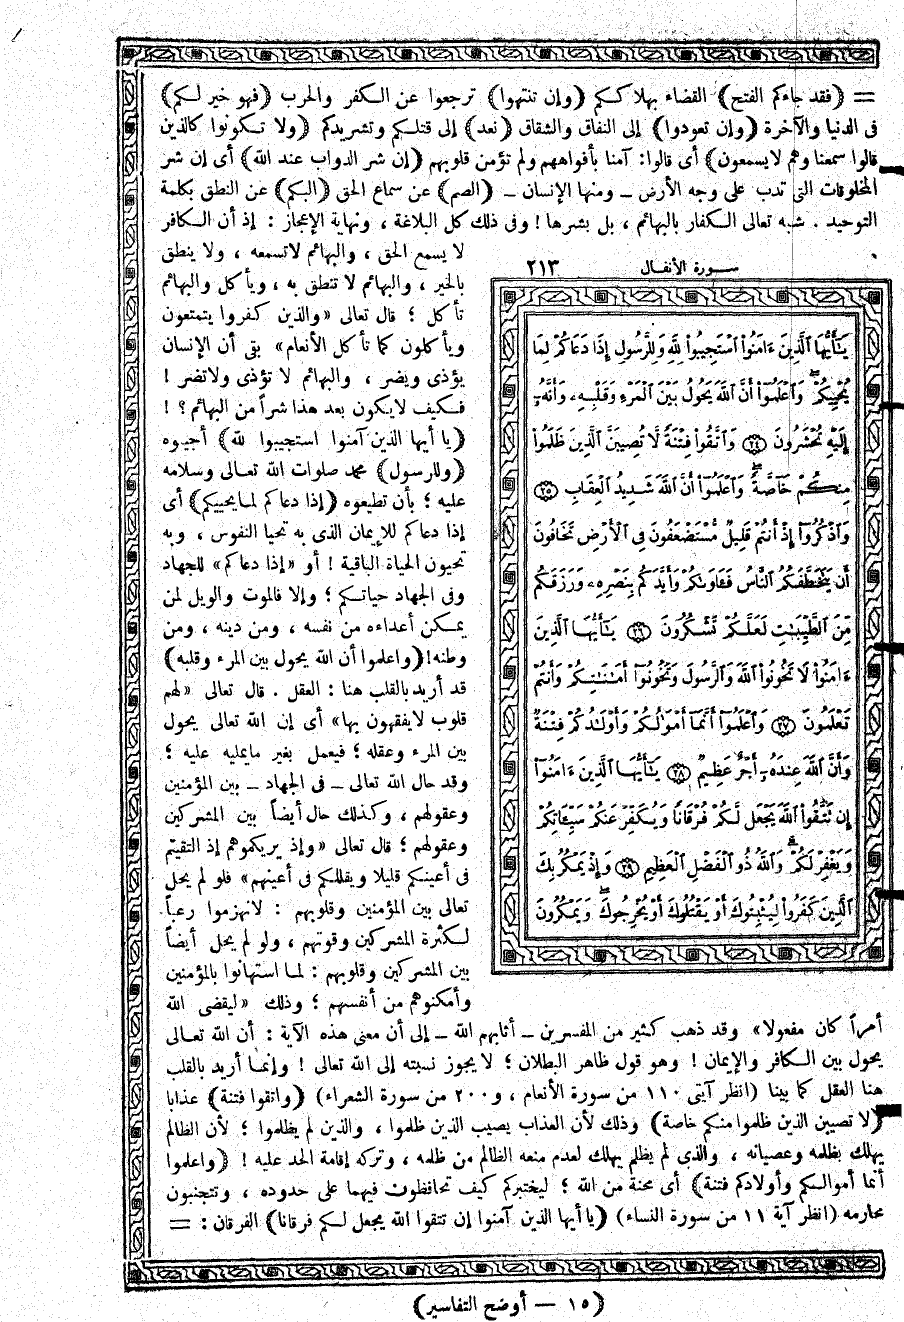 = (فقد جاءكم الفتح) القضاء بهلاككم (وإن تنتهوا) ترجعوا عن الكفر والحرب (فهو خير لكم)
فى الدنيا والآخرة (وإن تعودوا) إلى النفاق والشقاق (نعد) إلى قتلكم وتشريدكم (ولا تكونوا كالذين
قالوا سمعنا وهم لايسمعون) أى قالوا: آمنا بأفواههم ولم تؤمن قلوبهم (إن شر الدواب عند الله) أى إن شر
المخلوقات التى تدب على وجه الأرض ـ ومنها الإنسان ـ (الصم) عن سماع الحق (البكم) عن النطق بكلمة
التوحيد . شبه تعالى الكفار بالبهائم ، بل بشرها ! وفى ذلك كل البلاغة ، ونهاية الإعجاز : إذ أن الكافر
لا يسمع الحق ، والبهائم لاتسمعه ، ولا ينطق
بالخير ، والبهائم لا تنطق به ، ويأكل والبهائم
تأكل ؛ قال تعالى «والذين كفروا يتمتعون
ويأكلون كما تأكل الأنعام» بقى أن الإنسان
يؤذى ويضر ، والبهائم لا تؤذى ولاتضر !
فكيف لايكون بعد هذا شراً من البهائم ؟ !
(يا أيها الذين آمنوا استجيبوا لله) أجيبوه
(وللرسول) محمد صلوات الله تعالى وسلامه
عليه ؛ بأن تطيعوه (إذا دعاكم لما يحييكم) أى
إذا دعاكم للإيمان الذى به تحيا النفوس ، وبه
تحيون الحياة الباقية ! أو «إذا دعاكم» للجهاد
وفى الجهاد حياتكم ؛ وإلا فالموت والويل لمن
يمكن أعداءه من نفسه ، ومن دينه ، ومن
وطنه! (واعلموا أن الله يحول بين المرء وقلبه)
قد أريد بالقلب هنا : العقل . قال تعالى «لهم
قلوب لايفقهون بها» أى إن الله تعالى يحول
بين المرء وعقله ؛ فيعمل بغير مايمليه عليه ؛
وقد حال الله تعالى ـ فى الجهاد ـ بين المؤمنين
وعقولهم ، وكذلك حال أيضاً بين المشركين
وعقولهم ؛ قال تعالى «وإذ يريكموهم إذ التقيتم
فى أعينكم قليلا ويقللكم فى أعينهم» فلو لم يحل
تعالى بين المؤمنين وقلوبهم : لانهزموا رعباً
لكثرة المشركين وقوتهم ، ولو لم يحل أيضاً
بين المشركين وقلوبهم : لما استهانوا بالمؤمنين
وأمكنوهم من أنفسهم ؛ وذلك «ليقضى الله
سورة الأنفال ٢١٣
يَٰٓأَيُّهَا ٱلَّذِينَ ءَامَنُوا۟ ٱسْتَجِيبُوا۟ لِلَّهِ وَلِلرَّسُولِ إِذَا دَعَاكُمْ لِمَا
يُحْيِيكُمْ ۖ وَٱعْلَمُوٓا۟ أَنَّ ٱللَّهَ يَحُولُ بَيْنَ ٱلْمَرْءِ وَقَلْبِهِۦ وَأَنَّهُۥٓ
إِلَيْهِ تُحْشَرُونَ ﴿٢٤﴾ وَٱتَّقُوا۟ فِتْنَةً لَّا تُصِيبَنَّ ٱلَّذِينَ ظَلَمُوا۟
مِنكُمْ خَآصَّةً ۖ وَٱعْلَمُوٓا۟ أَنَّ ٱللَّهَ شَدِيدُ ٱلْعِقَابِ ﴿٢٥﴾
وَٱذْكُرُوٓا۟ إِذْ أَنتُمْ قَلِيلٌ مُّسْتَضْعَفُونَ فِى ٱلْأَرْضِ تَخَافُونَ
أَن يَتَخَطَّفَكُمُ ٱلنَّاسُ فَـَٔاوَىٰكُمْ وَأَيَّدَكُم بِنَصْرِهِۦ وَرَزَقَكُم
مِّنَ ٱلطَّيِّبَٰتِ لَعَلَّكُمْ تَشْكُرُونَ ﴿٢٦﴾ يَٰٓأَيُّهَا ٱلَّذِينَ
ءَامَنُوا۟ لَا تَخُونُوا۟ ٱللَّهَ وَٱلرَّسُولَ وَتَخُونُوٓا۟ أَمَٰنَٰتِكُمْ وَأَنتُمْ
تَعْلَمُونَ ﴿٢٧﴾ وَٱعْلَمُوٓا۟ أَنَّمَآ أَمْوَٰلُكُمْ وَأَوْلَٰدُكُمْ فِتْنَةٌ
وَأَنَّ ٱللَّهَ عِندَهُۥٓ أَجْرٌ عَظِيمٌ ﴿٢٨﴾ يَٰٓأَيُّهَا ٱلَّذِينَ ءَامَنُوٓا۟
إِن تَتَّقُوا۟ ٱللَّهَ يَجْعَل لَّكُمْ فُرْقَانًا وَيُكَفِّرْ عَنكُمْ سَيِّـَٔاتِكُمْ
وَيَغْفِرْ لَكُمْ ۗ وَٱللَّهُ ذُو ٱلْفَضْلِ ٱلْعَظِيمِ ﴿٢٩﴾ وَإِذْ يَمْكُرُ بِكَ
ٱلَّذِينَ كَفَرُوا۟ لِيُثْبِتُوكَ أَوْ يَقْتُلُوكَ أَوْ يُخْرِجُوكَ ۚ وَيَمْكُرُونَ
أمراً كان مفعولا» وقد ذهب كثير من المفسرين ـ أثابهم الله ـ إلى أن معنى هذه الآية : أن الله تعالى
يحول بين الكافر والإيمان ! وهو قول ظاهر البطلان ؛ لا يجوز نسبته إلى الله تعالى ! وإنما أريد بالقلب
هنا العقل كما بينا (انظر آيتى ١١٠ من سورة الأنعام ، و ٢٠٠ من سورة الشعراء) (واتقوا فتنة) عذابا
(لا تصيبن الذين ظلموا منكم خاصة) وذلك لأن العذاب يصيب الذين ظلموا ، والذين لم يظلموا ؛ لأن الظالم
يهلك بظلمه وعصيانه ، والذى لم يظلم يهلك لعدم منعه الظالم من ظلمه ، وتركه إقامة الحد عليه ! (واعلموا
أنما أموالكم وأولادكم فتنة) أى محنة من الله ؛ ليختبركم كيف تحافظون فيهما على حدوده ، وتتجنبون
محارمه (انظر آية ١١ من سورة النساء) (يا أيها الذين آمنوا إن تتقوا الله يجعل لكم فرقانا) الفرقان : =
(١٥ — أوضح التفاسير)